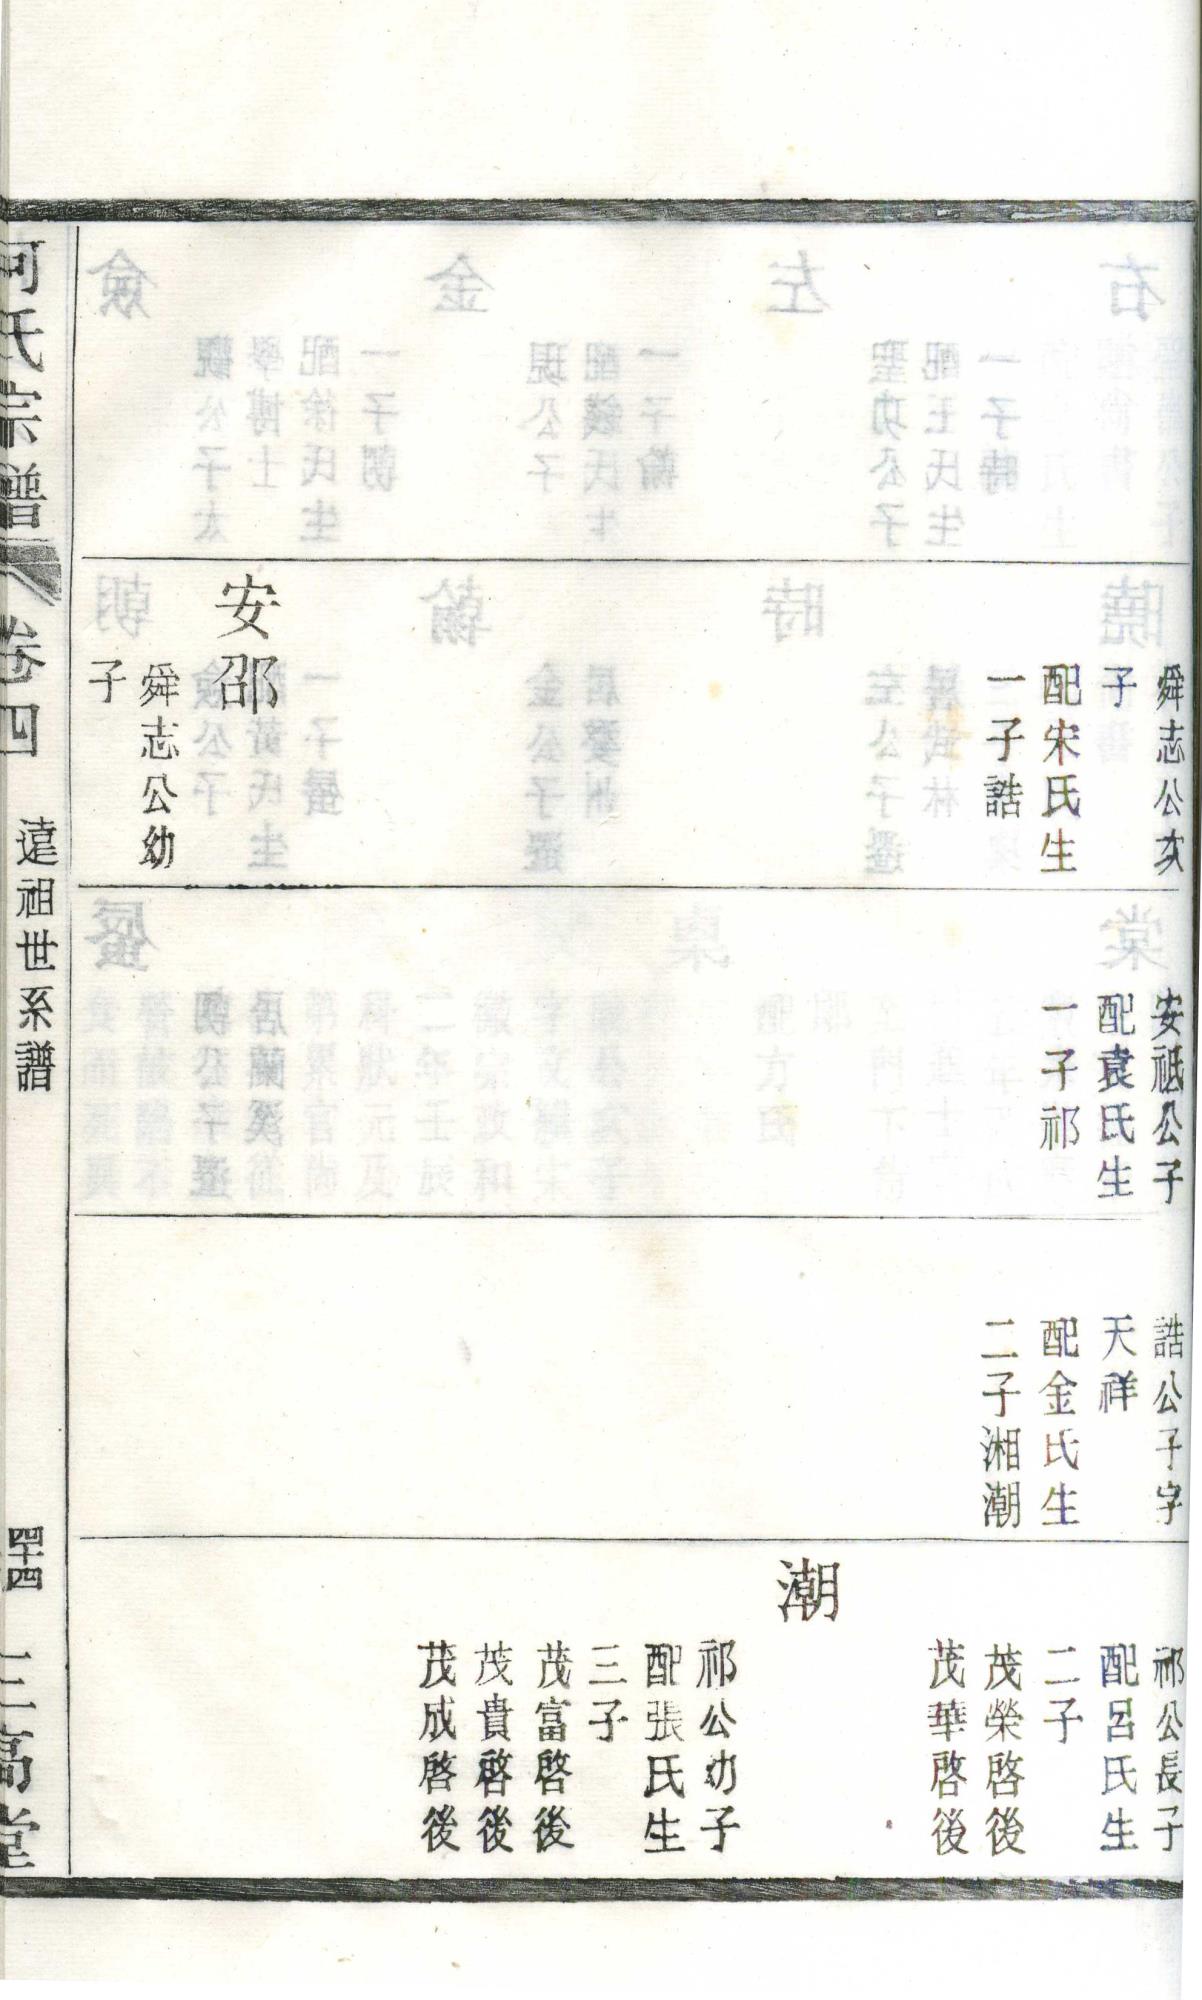 舜志公次
子
配宋氏生
一子誥
安邵
舜志公幼
子
安祗公子
配袁氏生
一子祁
誥公子字
天祥
配金氏生
二子湘潮
祁公長子
配呂氏生
二子
茂榮啓後
茂華啓後
潮
祁公幼子
配張氏生
三子
茂富啓後
茂貴啓後
茂成啓後
何氏宗譜
卷四
遠祖世系譜
四十四
三高堂